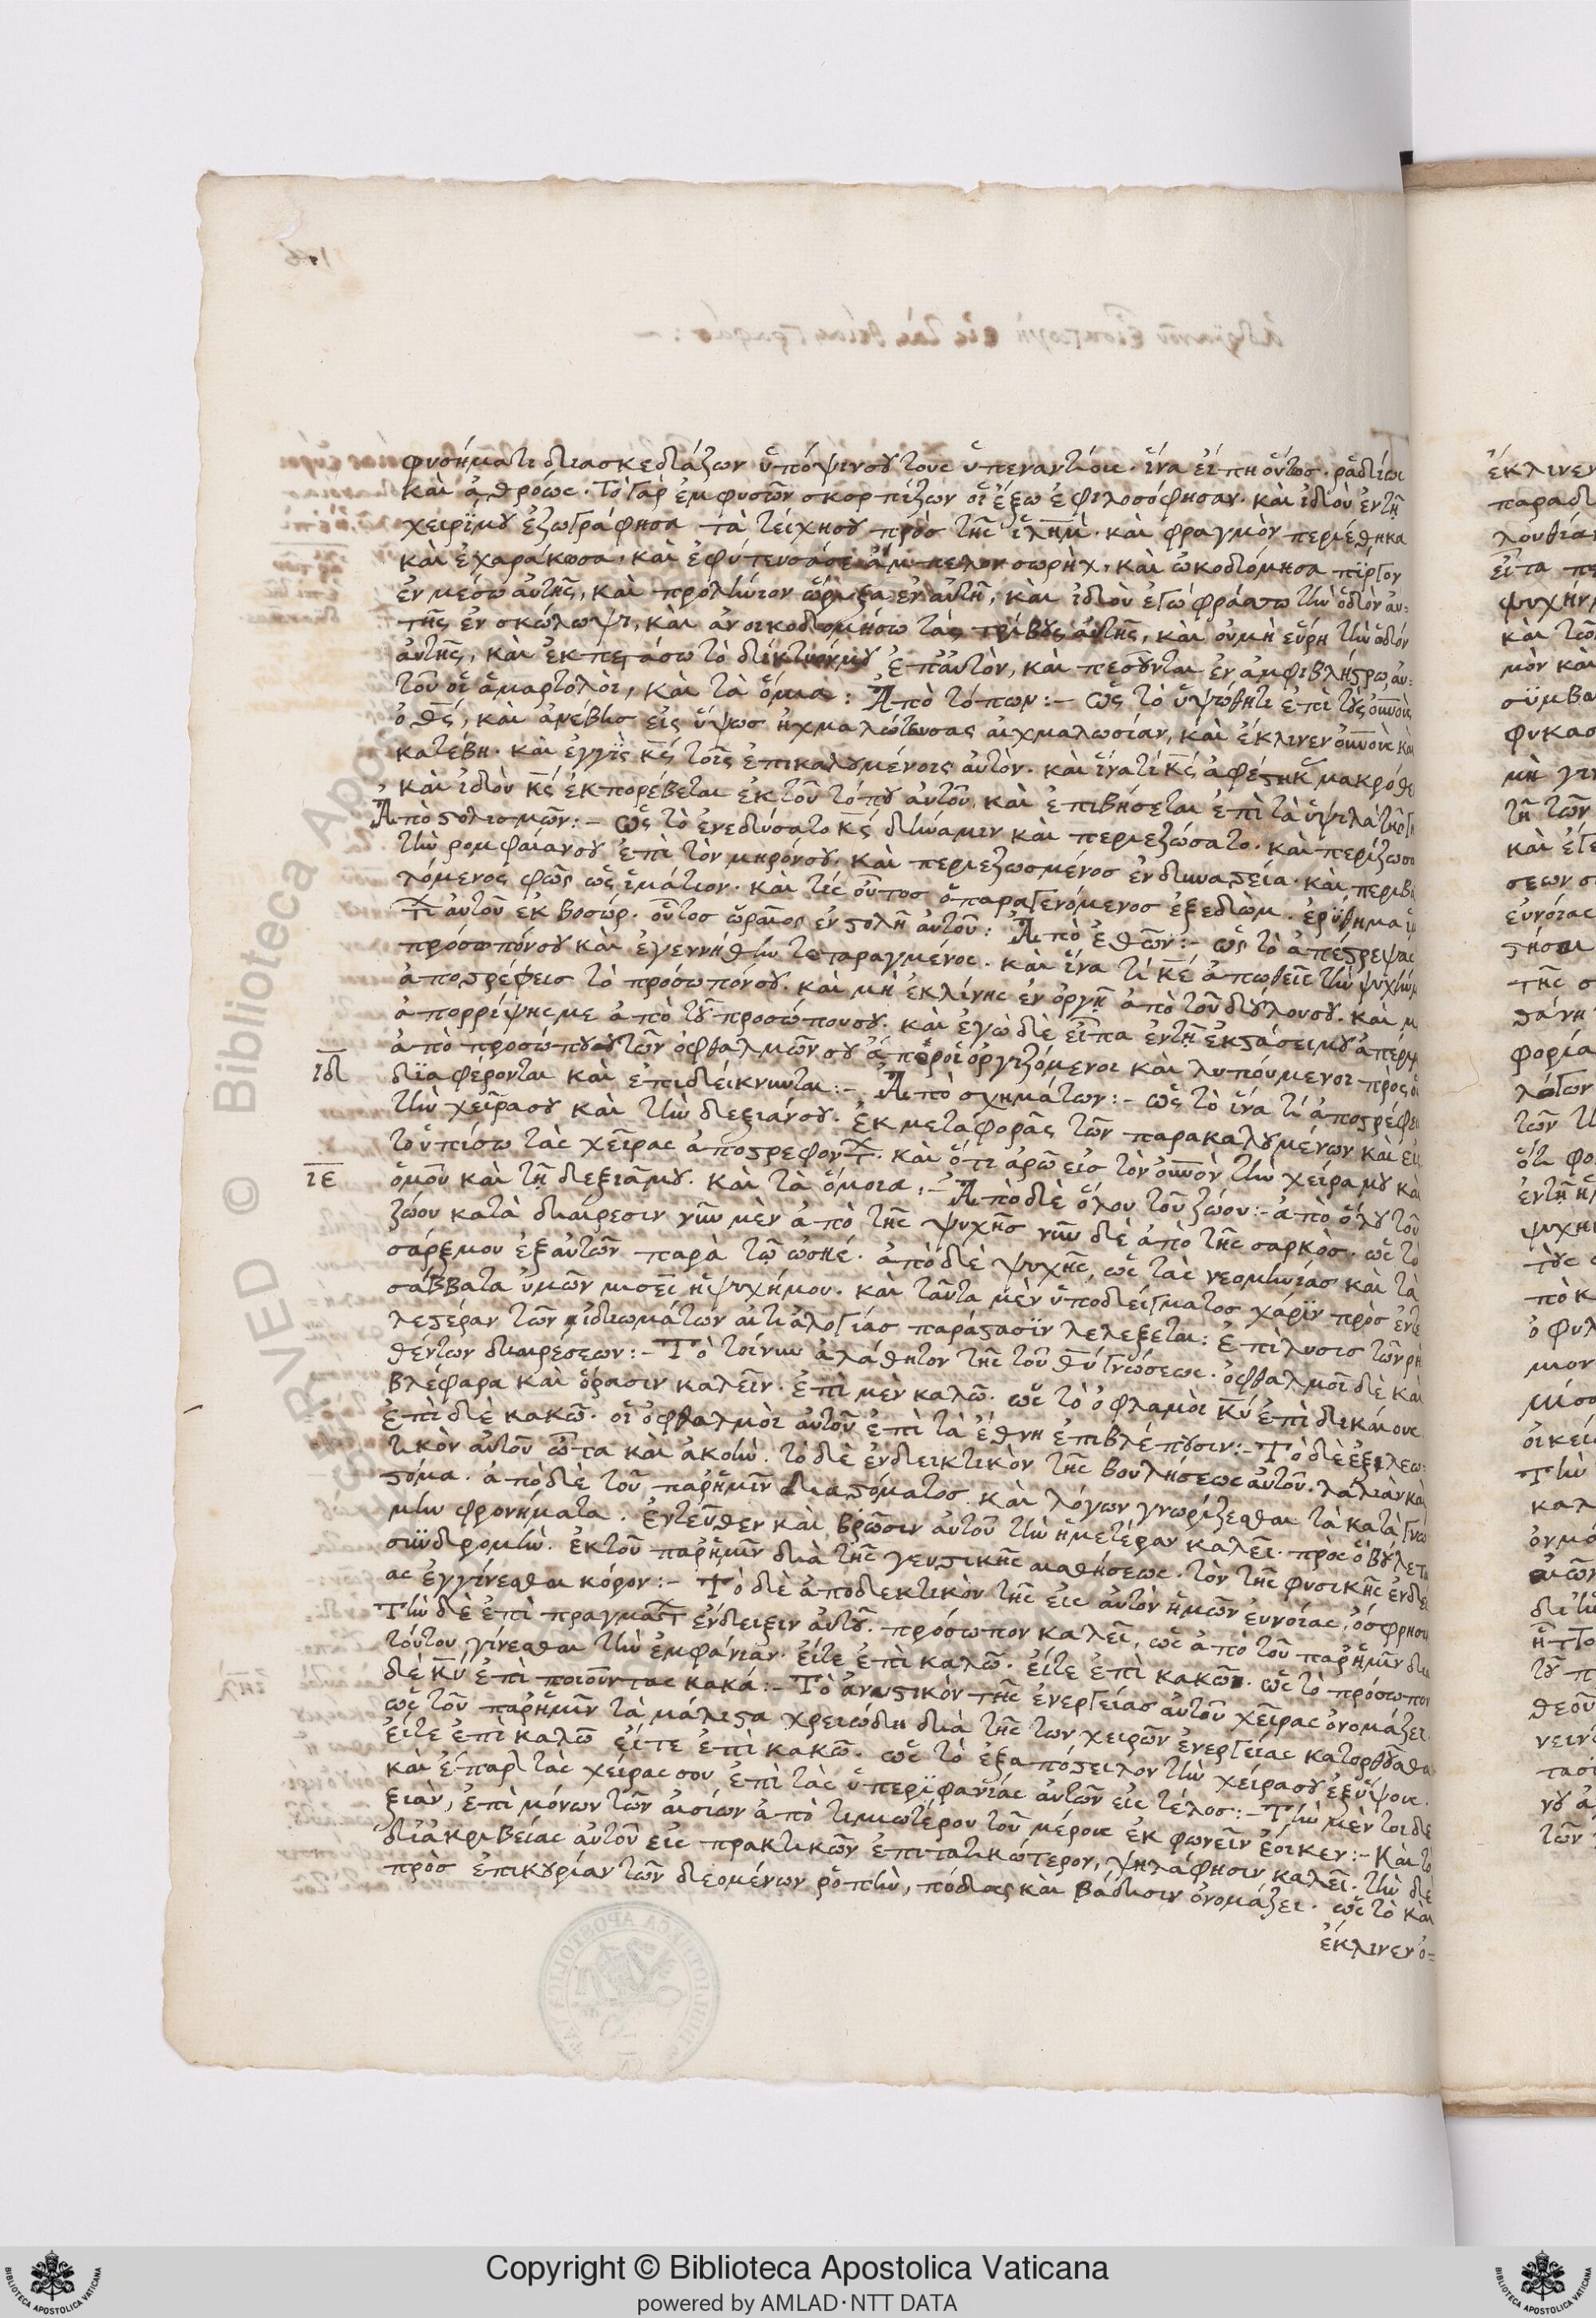 φυσήματι διασκεδάζων ὑπόψιν σου τους ὑπεναντίους. ἵνα εἴπη οὕτως. ῥαδίως
καὶ ἀθρόως. τὸ γὰρ ἐμφυσῶν σκορπίζων οἱ ἔξω ἐφιλοσόφησαν. καὶ ἰδιοὺ ἐν τῇ
χειρί μου ἐζωγράφησα τὰ τείχη σου πρὸς τῆς ἰλημ. καὶ φραγμὸν περιέθηκα
καὶ ἐχαράκωσα, καὶ ἐφύτευσά σε ἄμπελον σωρὴχ, καὶ ὠκοδόμησα πύργον
ἐν μέσω αὐτῆς, καὶ προλήνιον ὤρυξα ἐν αὐτῆ, καὶ ἰδοὺ ἐγώ φράσσω τὴν ὁδὸν αὐ-
τῆς ἐν σκώλωψι, καὶ ἀνοικοδομήσω τὰς τρίβους αὐτῆς, καὶ οὐ μὴ εὕρη τὴν ὁδόν
αὐτῆς, καὶ ἐκπετάσω τὸ δίκτυόν μου ἐπ' αὐτὸν, καὶ πεσοῦνται ἐν ἀμφιβλήστρω αὐ-
τοῦ οἱ ἁμαρτολοὶ, καὶ τὰ ὅμια: Ἀπὸ τόπων:- ὡς τὸ ὑψώθητι ἐπὶ τοὺς οὐνοὺς
ὁ θς, καὶ ἀνέβης εἰς ὕψος ἠχμαλώτευσας αἰχμαλωσίαν, καὶ ἔκλινεν οὐνοὺς καὶ
κατέβη. καὶ ἐγγὺς κς τοῖς ἐπικαλουμένοις αὐτὸν. καὶ ἵνα τί κς ἀφέστηκας μακρόθε
καὶ ἰδοὺ κς ἐκπορέβεται ἐκ τοῦ τόπου αὐτοῦ, καὶ ἐπιβήσεται ἐπὶ τὰ ὑψιλὰ τῆς γῆ
Ἀπὸ στολισμῶν:- ὡς τὸ ἐνεδύσατο κς δύναμιν καὶ περιεζώσατο. καὶ περίζωσε
τὴν ρομφαίαν σου ἐπὶ τὸν μηρόν σου. καὶ περιεζωσμένος ἐν δυναστεία. καὶ περιβα
λόμενος φῶς ὡς ἱμάτιον. καὶ τίς οὗτος ὁ παραγενόμενος ἐξ εδὼμ. ἐρύθημα ἱμ
τι αὐτοῦ ἐκ βοσώρ. οὗτος ὡραῖος ἐν στολῆ αὐτοῦ: Ἀπὸ ἐθῶν:- ὡς τὸ ἀπέστρεψας
πρόσωπόν σου καὶ ἐγεννήθην τεταραγμένος. καὶ ἵνα τί κε ἀπωθεῖς τὴν ψυχήν μ
ἀποστρέφεις τὸ πρόσωπόν σου. καὶ μὴ ἐκλίνης ἐν ὀργῇ ἀπὸ τοῦ δούλου σου. καὶ μ
ἀπορρίψης με ἀπὸ τοῦ προσώπου σου. καὶ ἐγὼ δὲ εἶπα ἐν τῇ ἐκστάσει μου ἀπέρρι
ἀπὸ προσώπου τῶν ὀφθαλμῶν σου ἅπερ οἱ ὀργιζόμενοι καὶ λυπούμενοι πρὸς οὓ
ιδ διαφέρονται καὶ ἐπιδείκνυνται:- Ἀπὸ σχημάτων:- ὡς τὸ ἵνα τί ἀποστρέφει
τὴν χεῖρα σου καὶ τὴν δεξιάν σου. ἐκ μεταφορᾶς τῶν παρακαλουμένων καὶ εἰς
τοὐπίσω τὰς χεῖρας ἀποστρεφοντ. καὶ ὅτι ἀρῶ εἰς τὸν οὐνὸν τὴν χείρα μου κα
ιε ὁμοῦ καὶ τῇ δεξιᾶ μου. καὶ τὰ ὅμοια:- Ἀπὸ δὲ ὅλου τοῦ ζώου:- ἀπὸ ὅλου τοῦ
ζώου κατὰ διαίρεσιν νῦν μὲν ἀπὸ τῆς ψυχῆς νῦν δὲ ἀπὸ τῆς σαρκὸς. ὡς τὸ
σάρξ μου ἐξ αὐτῶν παρὰ τῷ ὠσηέ. ἀπὸ δὲ ψυχῆς, ὡς τὰς νεομηνίας καὶ τὰ
σάββατα ὑμῶν μισεῖ ἡ ψυχή μου. καὶ ταῦτα μὲν ὑποδείγματος χάριν πρὸς ἐντε
λεστέραν τῶν ἰδιωμάτων αἰτιαλογίας παράστασιν λελέξεται: ἐπίλυσις τῶν ρη
θέντων διαιρέσεων:- Τὸ τοίνυν ἀλάθητον τῆς τοῦ θυ γνώσεως. ὀφθαλμοὶ δὲ καὶ
βλέφαρα καὶ ὅρασιν καλεῖν. ἐπὶ μὲν καλῶ. ὡς τὸ ὀφλαμοὶ κυ ἐπὶ δικαίους
ἐπὶ δὲ κακῶ. οἱ ὀφθαλμοὶ αὐτοῦ ἐπὶ τὰ ἔθνη ἐπιβλέπουσιν:- Τὸ δὲ ἐξιλεω-
τικὸν αὐτοῦ ὦτα καὶ ἀκοήν. τὸ δὲ ἐνδεικτικὸν τῆς βουλήσεως αὐτοῦ. λαλιὰν καὶ
στόμα. ἀπὸ δὲ τοῦ παρ' ἡμῖν δια στόματος καὶ λόγων γνωρίζεσθαι τὰ κατὰ γνώ
μην φρονήματα. ἐντεῦθεν καὶ βρῶσιν αὐτοῦ τὴν ἡμετέραν καλεῖ. πρὸς ὃ βούλετα
συνδρομήν. ἐκ τοῦ παρ' ἡμῖν διὰ τῆς γευστικῆς αισθήσεως. τὸν τῆς φυσικῆς ἐνδεί
ας ἐγγίνεσθαι κόρον:- Τὸ δὲ ἀποδεκτικὸν τῆς εἰς αὐτὸν ἡμῶν εὐνοίας, ὄσφρησι
Τὴν δὲ ἐπὶ πραγμάτ ἔνδειξιν αὐτοῦ. πρόσωπον καλεῖ, ὡς ἀπὸ τοῦ παρ' ἡμῖν δια
τούτου γίνεσθαι τὴν ἐμφάνιαν. εἴτε ἐπὶ καλῶ. εἴτε ἐπὶ κακῶ. ὡς τὸ πρόσωπον
δὲ κυ ἐπὶ ποιοῦντας κακά:- Τὸ ἀνυστικὸν τῆς ἐνεργείας αὐτοῦ χεῖρας ὀνομάζει
ὡς τοῦ παρ' ἡμῖν τὰ μάλιστα χρειώδη διὰ τῆς των χειρῶν ἐνεργείας κατορθοῦσθα
εἴτε ἐπὶ καλῶ εἴτε ἐπὶ κακῶ. ὡς τὸ ἐξαπόστειλον τὴν χείρα σου ἐξ ὕψους.
καὶ ἔπαρον τὰς χείρας σου ἐπὶ τὰς ὑπεριφανίας αὐτῶν εἰς τέλος:- Τὴν μέν τοι δε
ξιὰν, ἐπὶ μόνων τῶν αἰσίων ἀπὸ τιμιωτέρου τοῦ μέρους ἐκφωνεῖν ἔοικεν:- Καὶ τὸ
δι' ἀκριβείας αὐτοῦ εἰς πρακτικῶν ἐπιτατικώτερον, ψηλάφησιν καλεῖ. τὴν δὲ
πρὸς ἐπικουρίαν τῶν δεομένων ῥοπὴν, πόδας καὶ βάδισιν ὀνομάζει. ὡς τὸ καὶ
ἔκλινεν ο-
Copyright © Biblioteca Apostolica Vaticana
powered by AMLAD·NTT DATA